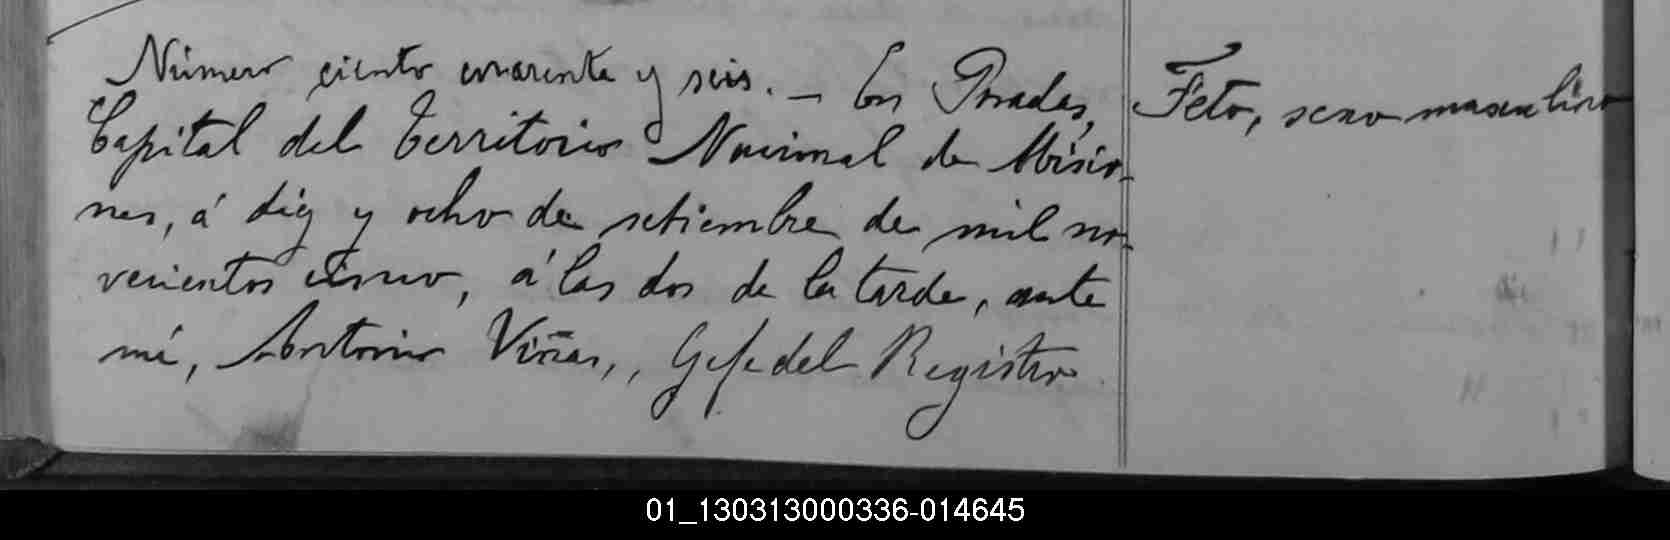 Número ciento cuarenta y seis. — En Posadas,
Capital del Territorio Nacional de Misio-
nes, á diez y ocho de setiembre de mil no-
vecientos cinco, á las dos de la tarde, ante
mí, Antonio Viñas, Gefe del Registro
Feto, sexo masculino
01_130313000336-014645